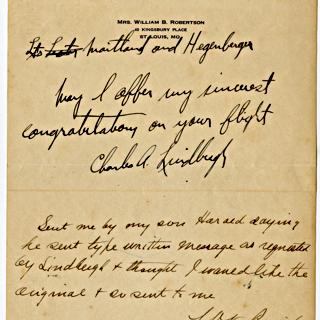 MRS. WILLIAM B. ROBERTSON
10 KINGSBURY PLACE
ST LOUIS, MO.
Maitland and Hegenberger
May I offer my sincerest
congratulations on your flight
Charles A. Lindbergh
Sent me by my son Harold saying
he sent type written message as requested
by Lindbergh & thought I would like the
original & so sent to me